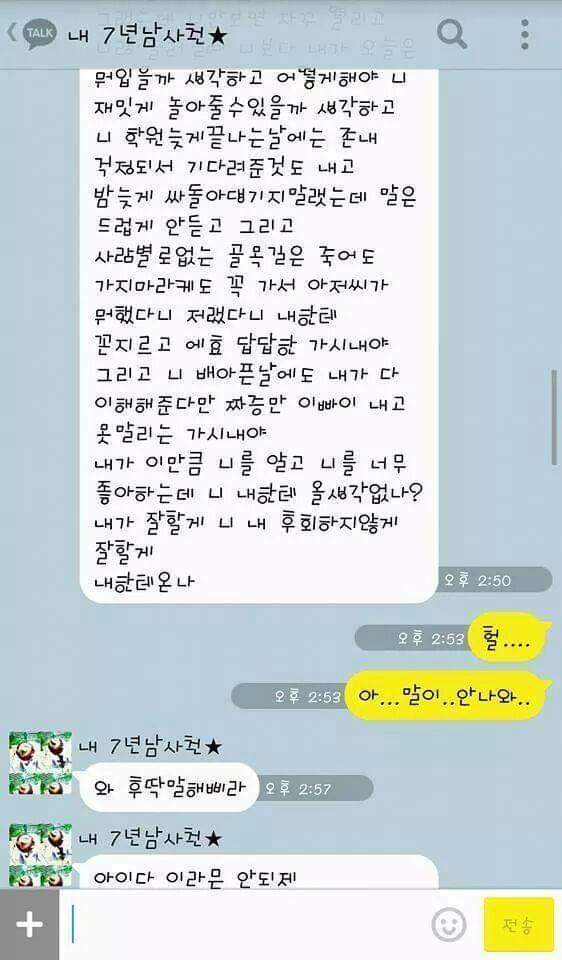 그런데 니만보면 자꾸 떨리고
TALK 내 7년남사친★
니보다 내가 오늘은
뭐입을까 생각하고 어떻게해야 니
재밋게 놀아줄수있을까 생각하고
니 학원늦게끝나는날에는 존내
걱정되서 기다려준것도 내고
밤늦게 싸돌아댜기지말랬는데 말은
드럽게 안듣고 그리고
사람별로없는 골목길은 죽어도
가지마라케도 꼭 가서 아저씨가
뭐했다니 저랬다니 내한테
꼰지르고 에효 답답한 가시내야
그리고 니 배아픈날에도 내가 다
이해해준다만 짜증만 이빠이 내고
못말리는 가시내야
내가 이만큼 니를 알고 니를 너무
좋아하는데 니 내한테 올생각없나?
내가 잘할게 니 내 후회하지않게
잘할게
내한테온나
오후 2:50
오후 2:53 헐....
오후 2:53 아...말이..안나와..
내 7년남사친★
와 후딱말해삐라 오후 2:57
내 7년남사친★
아이다 이라믄 안되제
전송